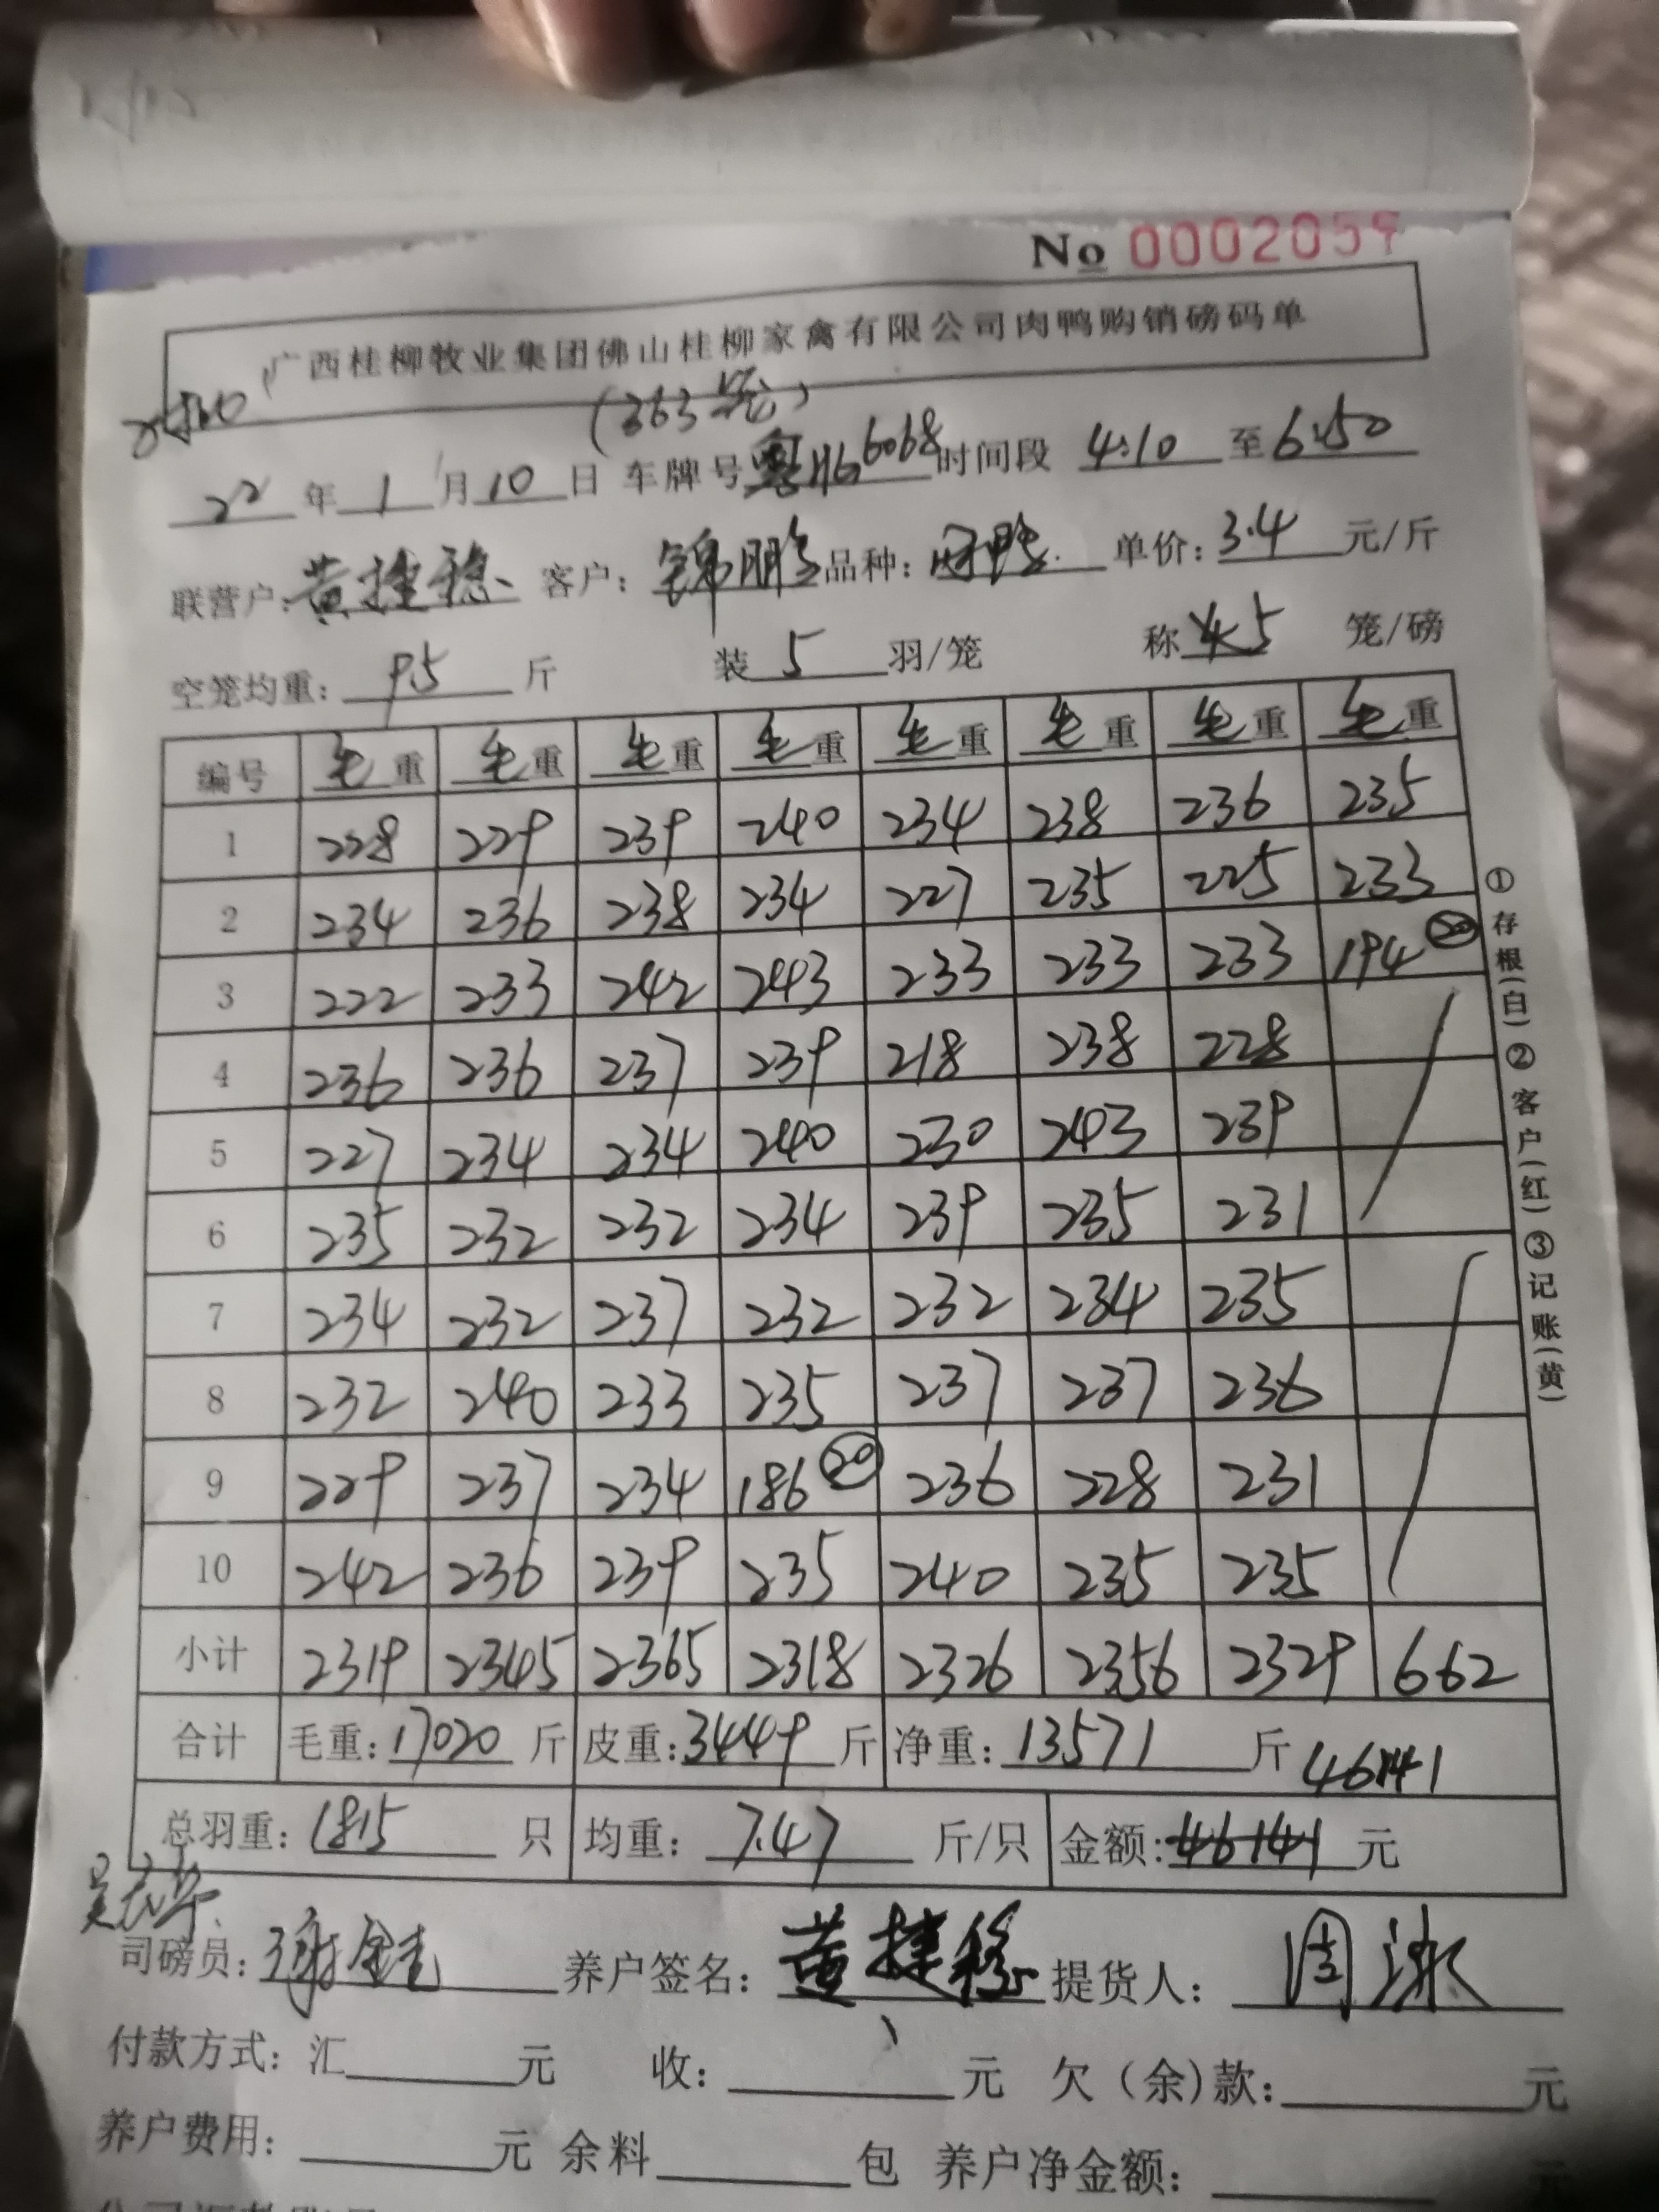 No 0002059
广西桂柳牧业集团佛山桂柳家禽有限公司肉鸭购销磅码单
(363笼)
22年1月10日 车牌号粤 6068 时间段 4:10至6:50
联营户:黄捷稳 客户:锦鹏 品种: 单价:3.4元/斤
空笼均重:9.5斤 装5羽/笼 称5笼/磅
编号 毛重 毛重 毛重 毛重 毛重 毛重 毛重 毛重
1 228 229 239 240 234 238 236 235
2 234 236 238 234 227 235 225 233
3 222 233 242 243 233 233 233 194 ⑳
4 236 236 237 239 218 238 228
5 227 234 234 240 230 243 239
6 235 232 232 234 239 235 231
7 234 232 237 232 232 234 235
8 232 240 233 235 237 237 236
9 229 237 234 186 ⑳ 236 228 231
10 242 236 239 235 240 235 235
小计 2319 2345 2365 2318 2326 2356 2329 662
合计 毛重:17020斤 皮重:3449斤 净重:13571斤 46141
总羽重:1815只 均重:7.47斤/只 金额:46141元
司磅员: 养户签名:黄捷稳 提货人:
付款方式:汇 元 收: 元 欠(余)款: 元
养户费用: 元 余料 包 养户净金额: 元
①存根(白)②客户(红)③记账(黄)